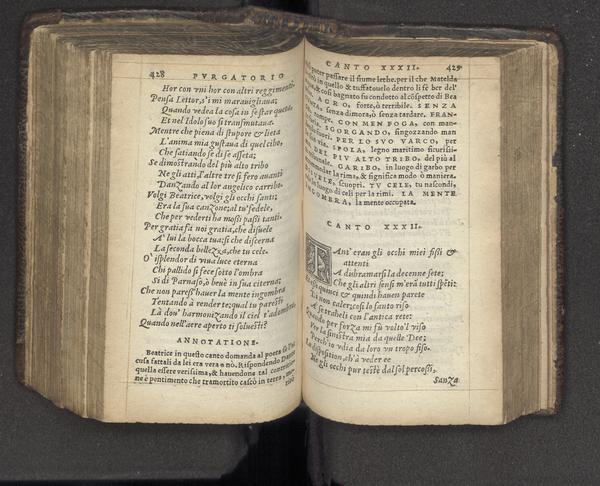 428 PVRGATORIO
Hor con vni hor con altri reggimenti.
Pensa Lettor, s'i mi marauigliaua;
Quando vedea la cosa in se star queta,
Et nel Idolo suo si transmutaua.
Mentre che piena di stupore & lieta
L'anima mia gustaua di quel cibo,
Che satiando se di se asseta;
Se dimostrando del più alto tribo
Ne gli atti, l'altre tre si fero auanti
Danzando al lor angelico carribo.
Volgi Beatrice, volgi gli occhi santi;
Era la sua canzone; al tu' fedele,
Che per vederti ha mossi passi tanti.
Per gratia fa noi gratia, che disuele
A' lui la bocca tua; si che discerna
La seconda bellezza, che tu cele.
O' isplendor di viua luce eterna
Chi pallido si fece sotto l'ombra
Si di Parnaso, ò beuè in sua citerna;
Che non paresi' hauer la mente ingombra
Tentando à render te; qual tu paresti
Là dou' harmonizando il ciel t'adombra
Quando nell'aere aperto ti soluesti?
ANNOTATIONE.
Beatrice in questo canto domanda al poeta se l'ac
cusa fattali da lei era vera ò nò. Rispondendo Dante
quella essere verissima, & hauendone tal contritio
ne è pentimento che tramortito cascò in terra,
CANTO XXXII. 429
poter passare il fiume lethe. per il che Matelda
tirò in quello & tuffatouelo dentro li fè ber del'
& così bagnato fu condotto al cospetto di Bea
AGRO, forte, ò terribile. SENZA
senza dimora, ò senza tardare. FRAN-
rompe. CON MEN FOGA, con man-
SGORGANDO, singozzando man
fuori. PER LO SUO VARCO, per
via. SPOLA, legno maritimo sicurissi-
DEL PIV ALTO TRIBO. del più al
GARIBO, in luogo di garbo per
la rima, & significa modo ò maniera.
scuopri. TV CELE, tu nascondi,
in luogo di celi per la rima. LA MENTE
INGOMBRA, la mente occupata.
CANTO XXXII.
TAnt' eran gli occhi miei fisi &
attenti
A disbramarsi la decenne sete;
Che gli altri sensi m'erà tutti spēti:
Et essi quinci & quindi hauen parete
Di non caler; così lo santo riso
A se traheli con l'antica rete:
Quando per forza mi fù volto'l viso
Ver la sinistra mia da quelle Dee;
Perch'io vdia da loro vn tropo fiso.
La disposition, ch'à veder ee
Ne gli occhi pur testè dal sol percossi,
Sanza